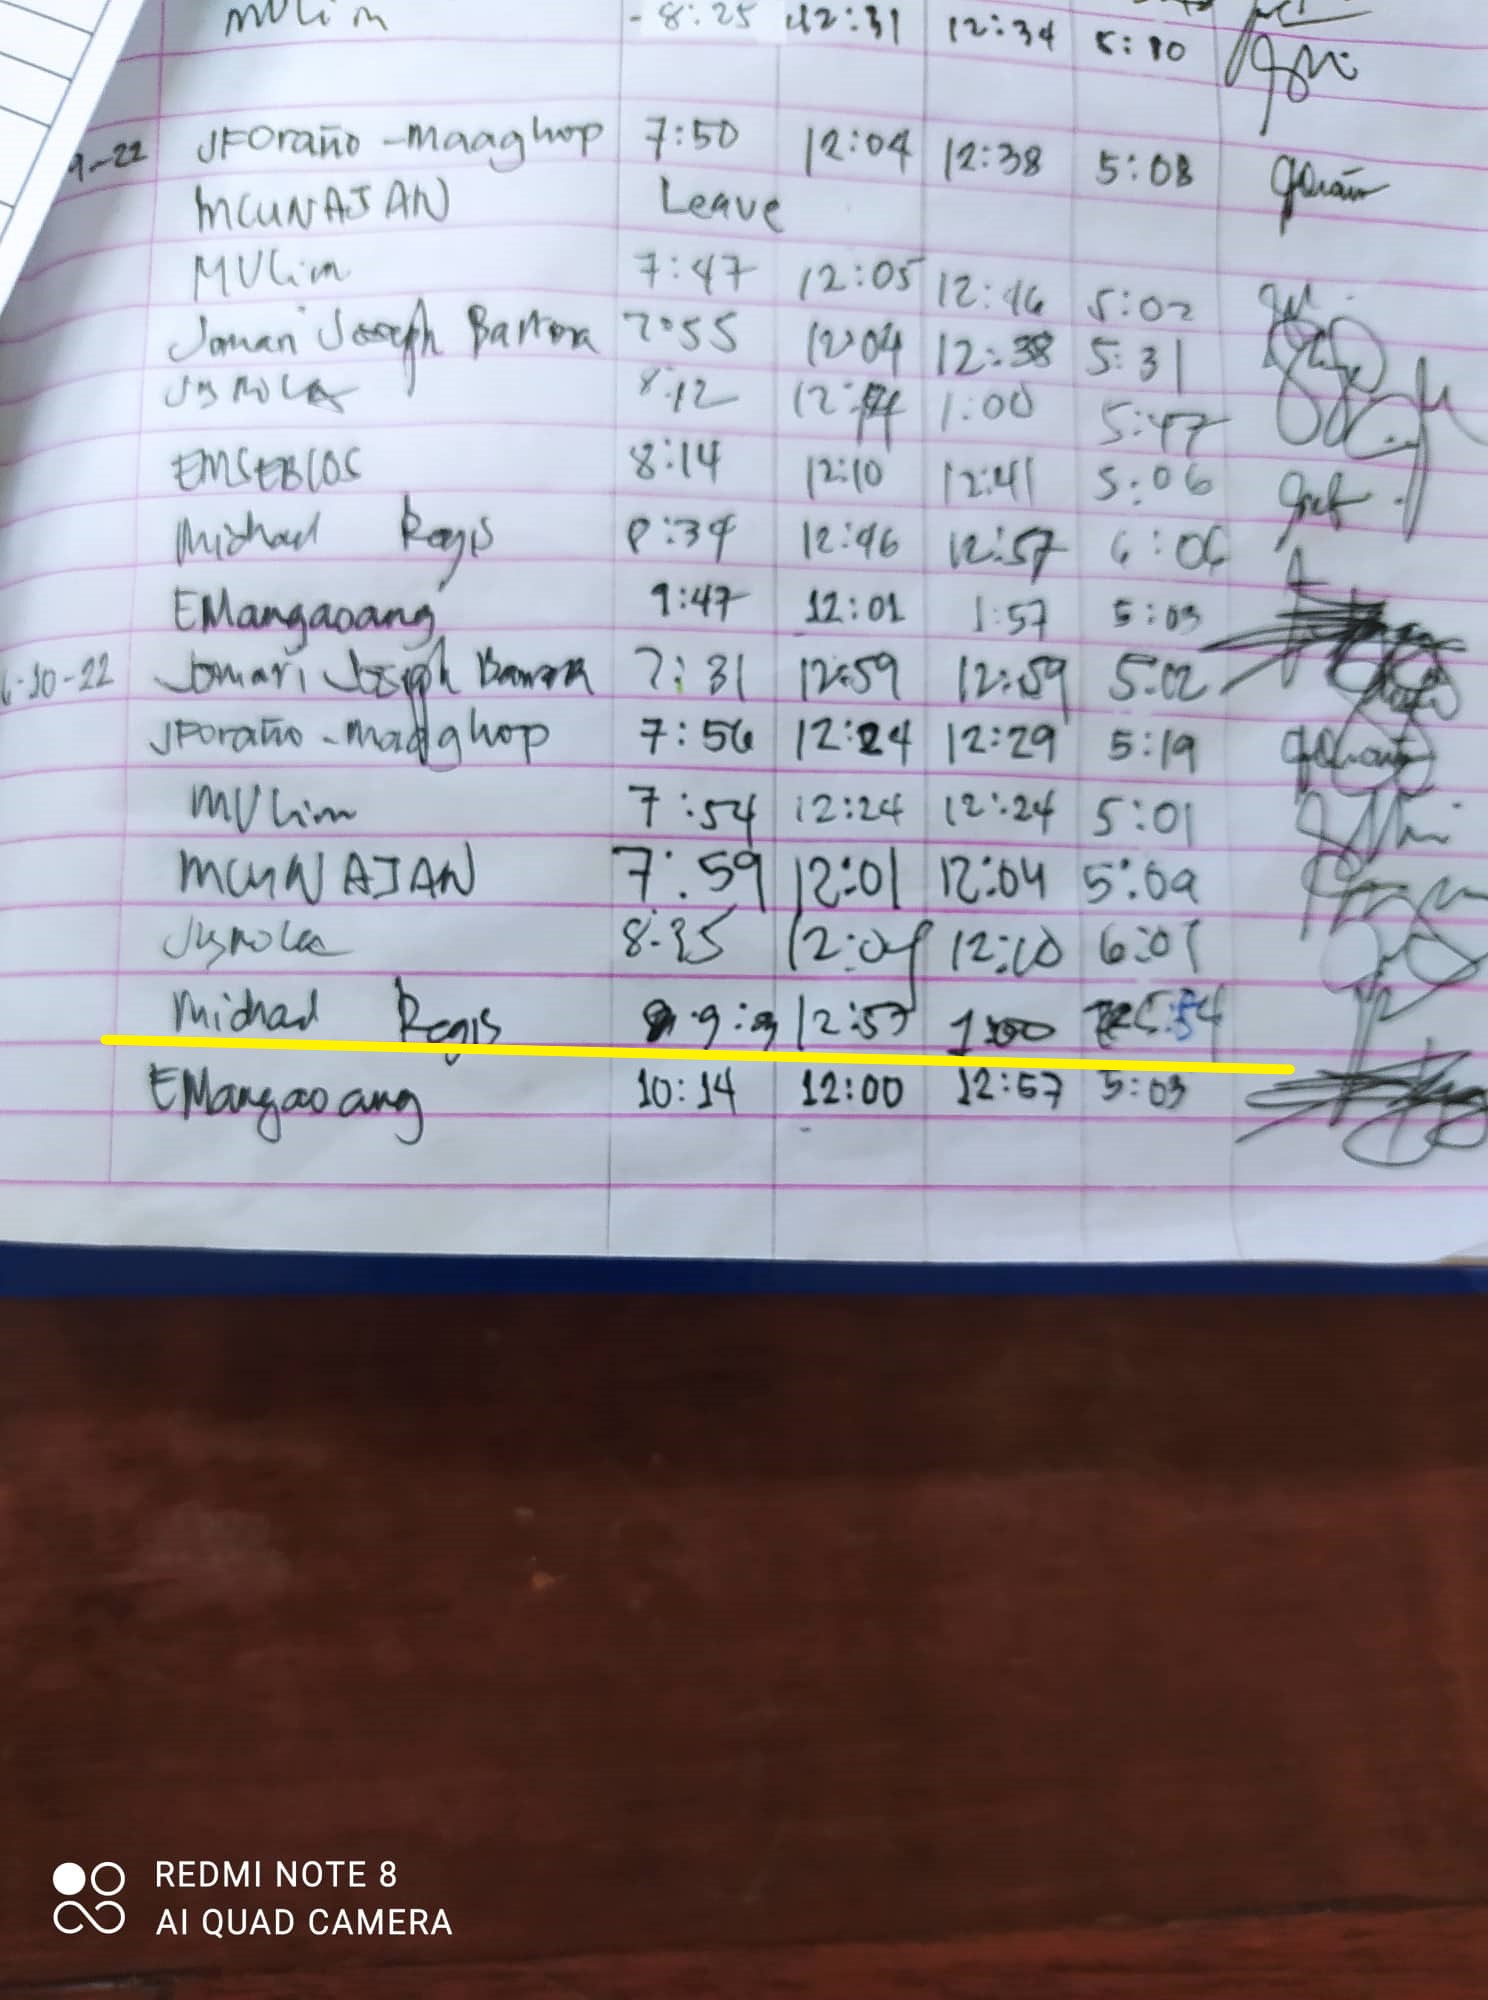 MVlim - 8:25 12:31 12:34 5:10
9-22 JFOraño - Maaghop 7:50 12:04 12:38 5:08
MCUNAJAN Leave
MVlim 7:47 12:05 12:46 5:02
Jomari Joseph 7:55 12:04 12:38 5:31
8:12 1:00 5:47
EMCEBLOS 8:14 12:10 12:41 5:06
Michael Regis 8:34 12:46 12:57 6:06
EMangaoang 9:47 12:01 1:57 5:03
10-22 Jomari Joseph 7:31 12:59 12:59 5:02
JFOraño - Maaghop 7:56 12:24 12:29 5:19
MVlim 7:54 12:24 12:24 5:01
MCUNAJAN 7:59 12:01 12:04 5:09
12:10
Michael Regis 12:57 1:00
EMangaoang 10:14 12:00 12:57 5:03
REDMI NOTE 8
AI QUAD CAMERA